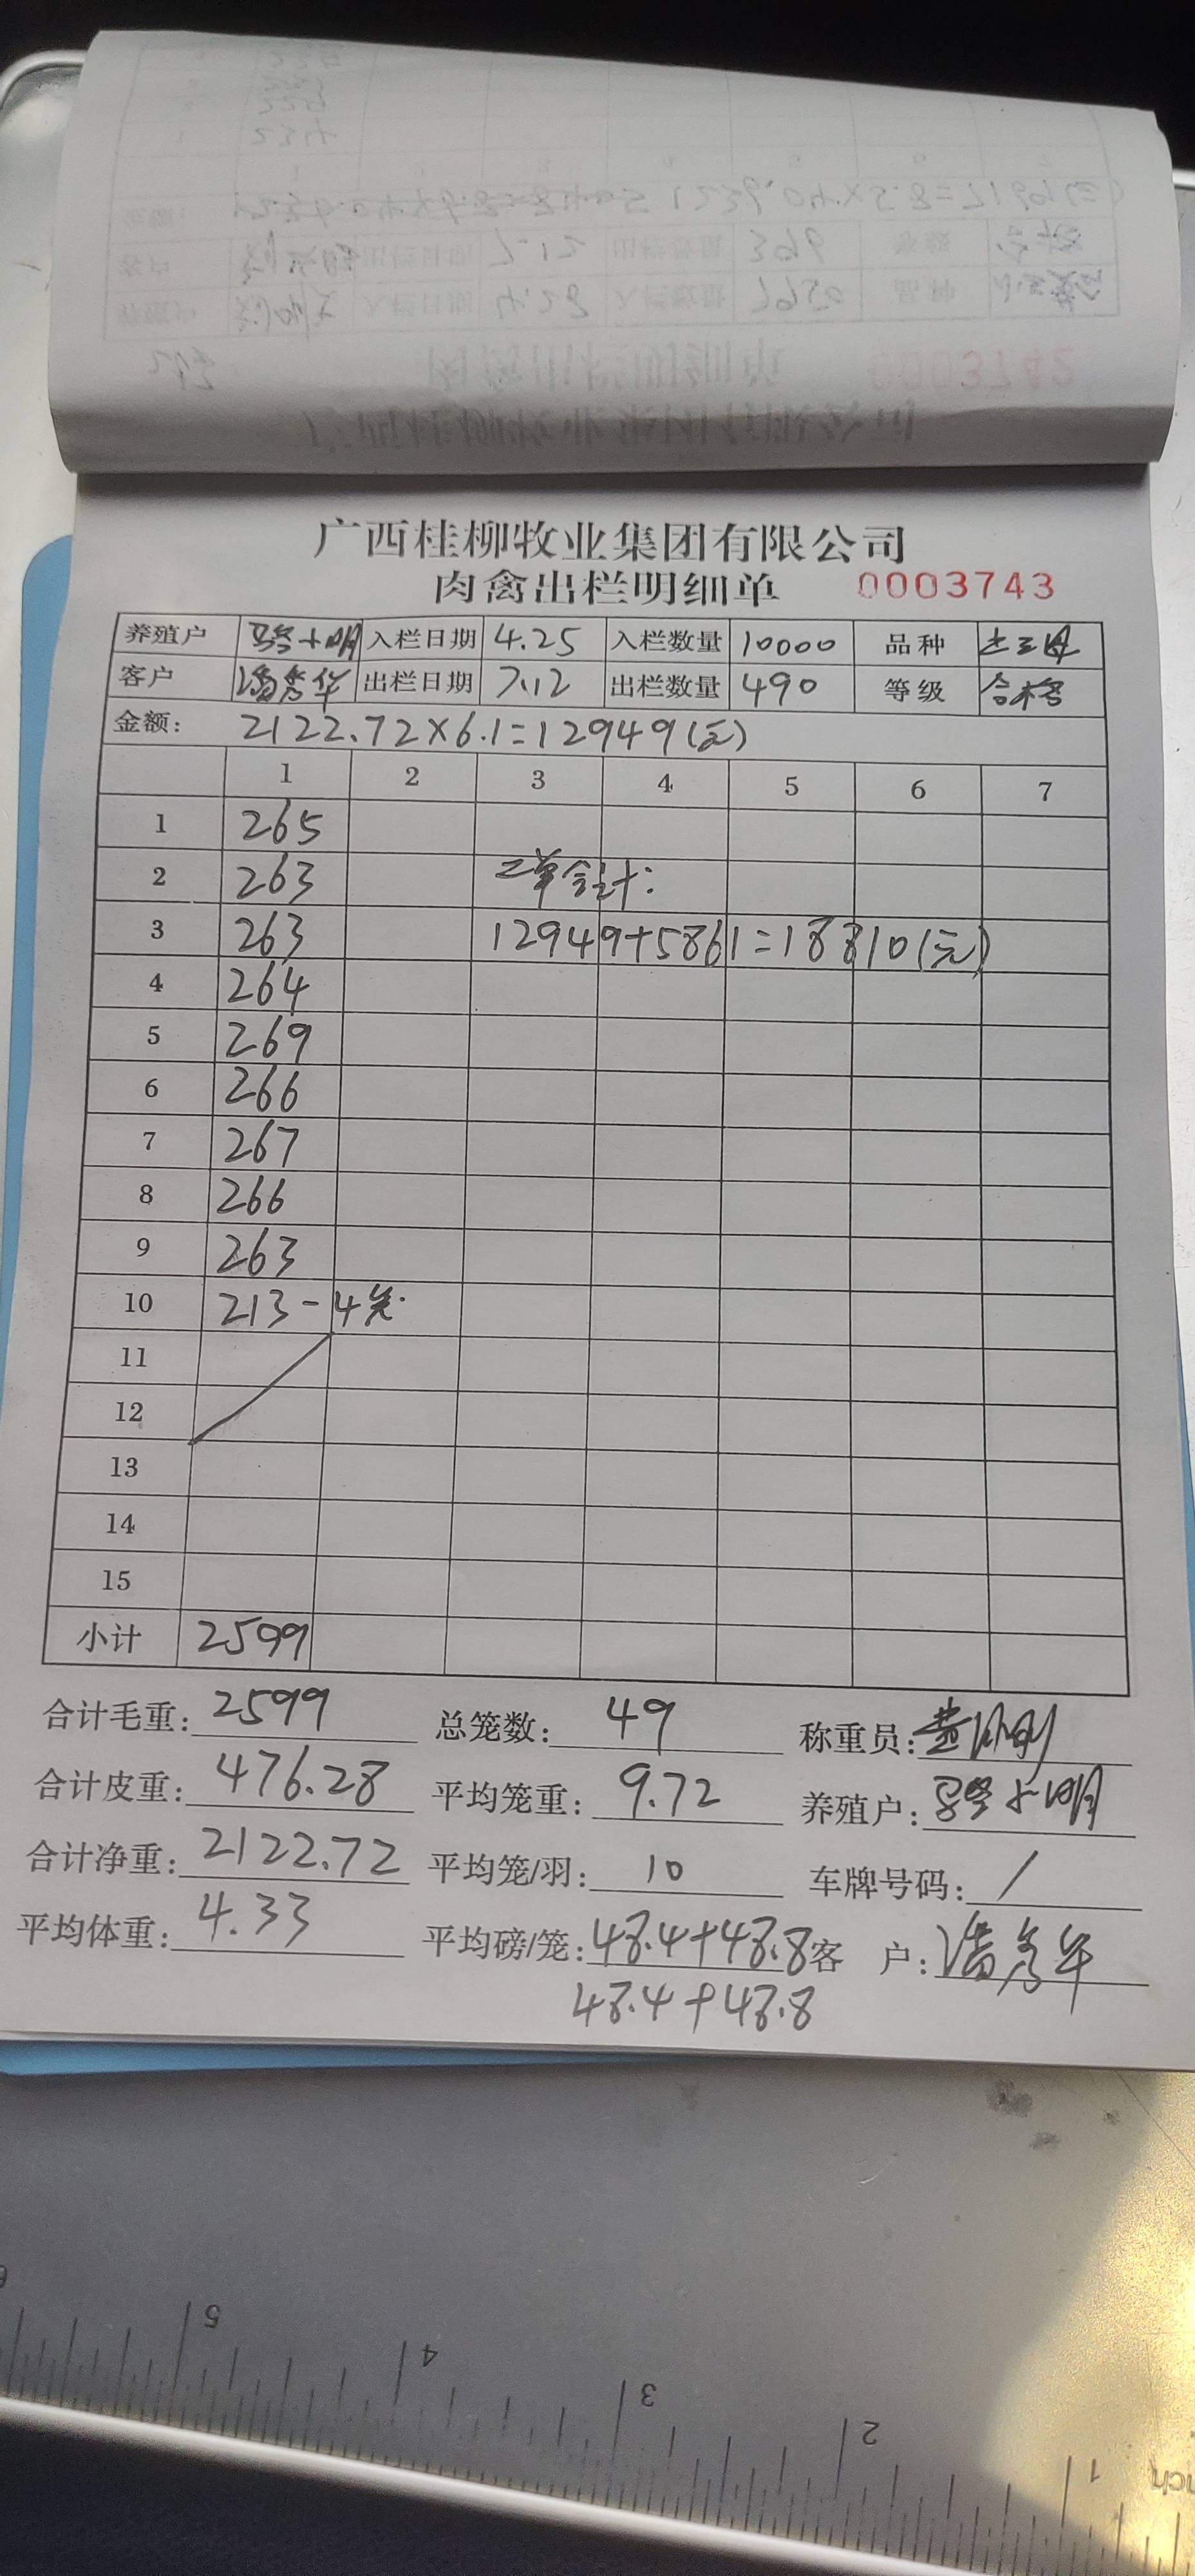 广西桂柳牧业集团有限公司
肉禽出栏明细单 0003743
养殖户 入栏日期 4.25 入栏数量 10000 品种
客户 潘秀华 出栏日期 7.12 出栏数量 490 等级 合格
金额: 2122.72×6.1=12949(元)
1 2 3 4 5 6 7
1 265
2 263 二单合计:
3 263 12949+5861=18810(元)
4 264
5 269
6 266
7 267
8 266
9 263
10 213-4笼.
11
12
13
14
15
小计 2599
合计毛重: 2599 总笼数: 49 称重员:
合计皮重: 476.28 平均笼重: 9.72 养殖户:
合计净重: 2122.72 平均笼/羽: 10 车牌号码: /
平均体重: 4.33 平均磅/笼: 48.4+48.8 客 户:
48.4+48.8
5
4
3
2
1